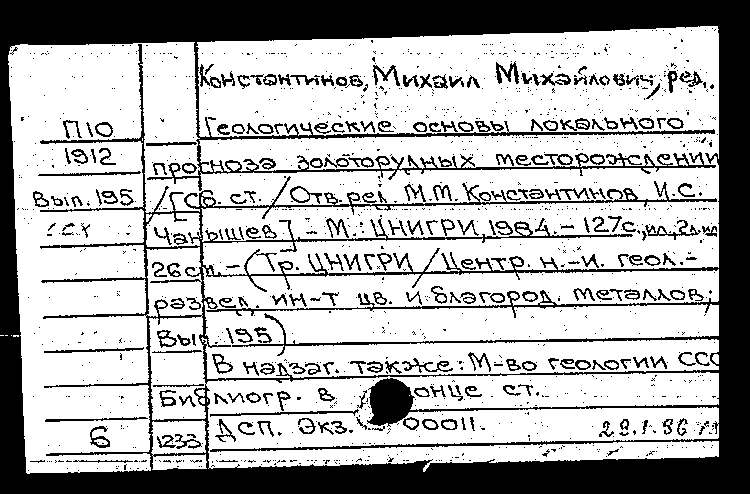 Константинов, Михаил Михайлович, ред.
П10 Геологические основы локального
1912 прогноза золоторудных месторождений
Вып. 195 /[Сб. ст. / Отв. ред. М.М. Константинов, И.С.
Чанышев] – М.: ЦНИГРИ, 1984. – 127с., ил., 2л. ил
26 см. – (Тр. ЦНИГРИ / Центр. н.-и. геол.-
развед. ин-т цв. и благород. металлов;
Вып. 195)
В надзаг. также: М-во геологии ССС
Библиогр. в конце ст.
6 1233 ДСП. Экз. 00011.